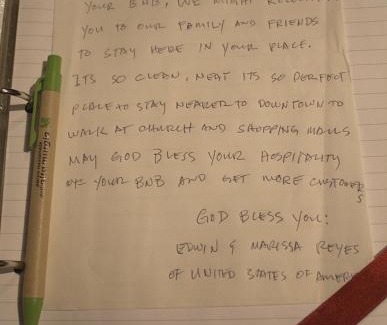 YOUR BNB, WE MIGHT
YOU TO OUR FAMILY AND FRIENDS
TO STAY HERE IN YOUR PLACE.
ITS SO CLEAN, NEAT ITS SO PERFECT
PLACE TO STAY NEARER TO DOWNTOWN TO
WALK AT CHURCH AND SHOPPING MALLS
MAY GOD BLESS YOUR HOSPITALITY
OF YOUR BNB AND GET MORE CUSTOMERS
GOD BLESS YOU:
EDWIN & MARISSA REYES
OF UNITED STATES OF AMERI